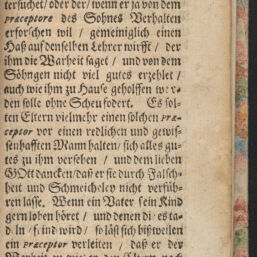 tersuchet/ oder der/ wenn er ja von dem
præceptore des Sohnes Verhalten
erforschen wil / gemeiniglich einen
Haß auf denselben Lehrer wirfft / der
ihm die Warheit saget / und von dem
Söhngen nicht viel gutes erzehlet /
auch wie ihm zu Hause geholffen wer-
den solle ohne Scheu fodert. Es sol-
ten Eltern vielmehr einen solchen præ-
ceptor vor einen redlichen und gewis-
senhafften Mann halten/ sich alles gu-
tes zu ihm versehen / und dem lieben
GOtt dancken/ daß er sie durch Falsch-
heit und Schmeicheley nicht verfüh-
ren lasse. Wenn ein Vater sein Kind
gern loben höret / und denen di es ta-
deln feind wird / so läßt sich bißweilen
ein præceptor verleiten / daß er der